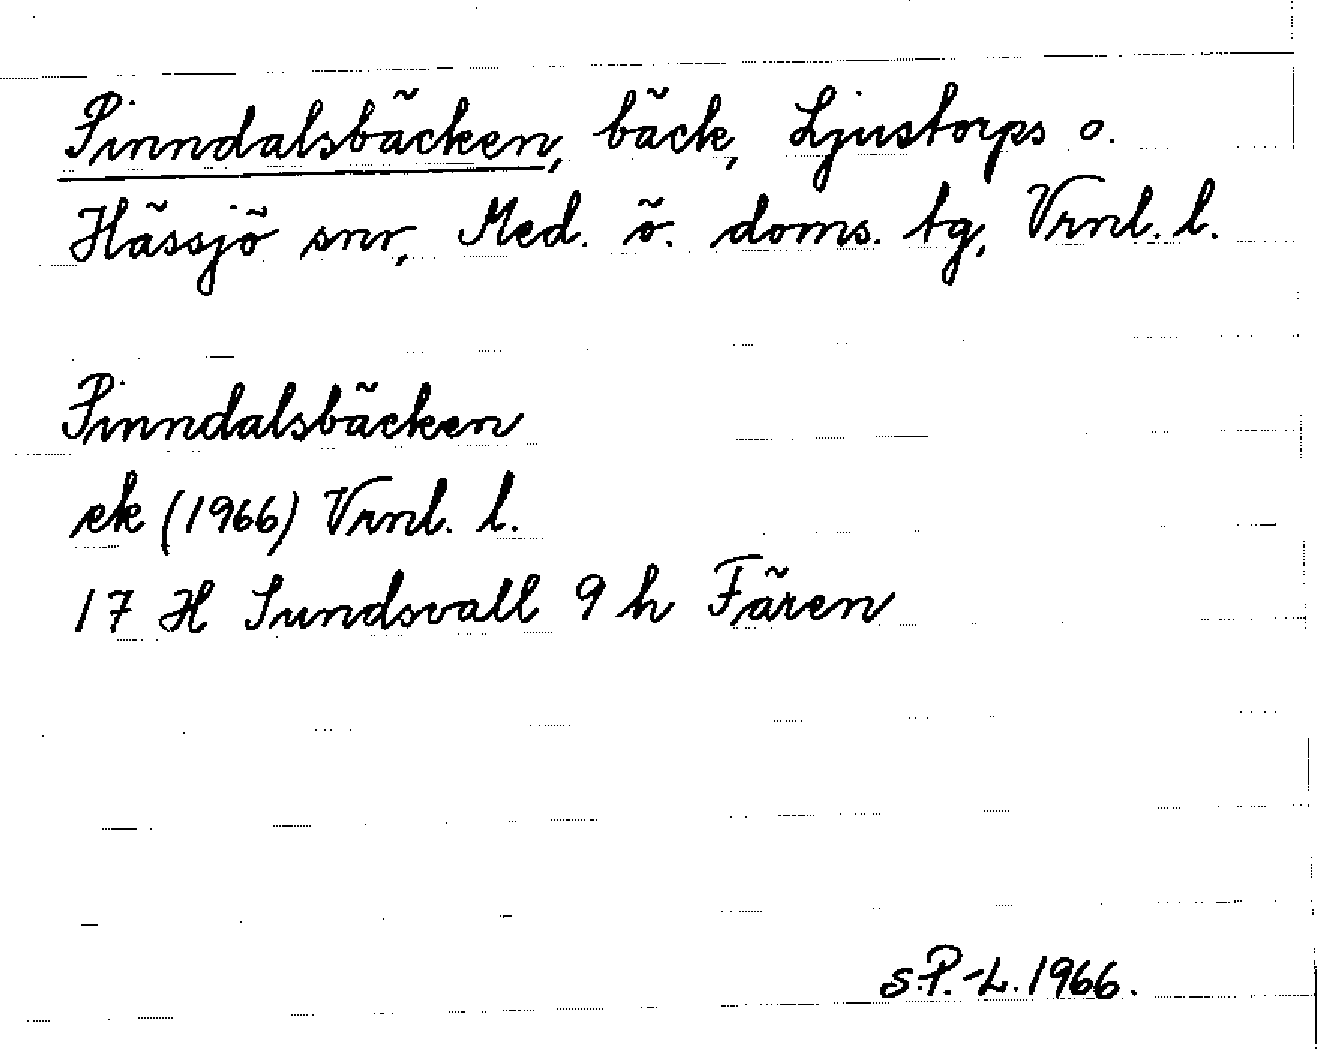 Pinndalsbäcken, bäck, Ljustorps o.
Hässjö snr, Med. ö. doms. tg, Vrnl. l.
Pinndalsbäcken
ek (1966) Vrnl. l.
17 H Sundsvall 9 h Fären
S.P.-L. 1966.